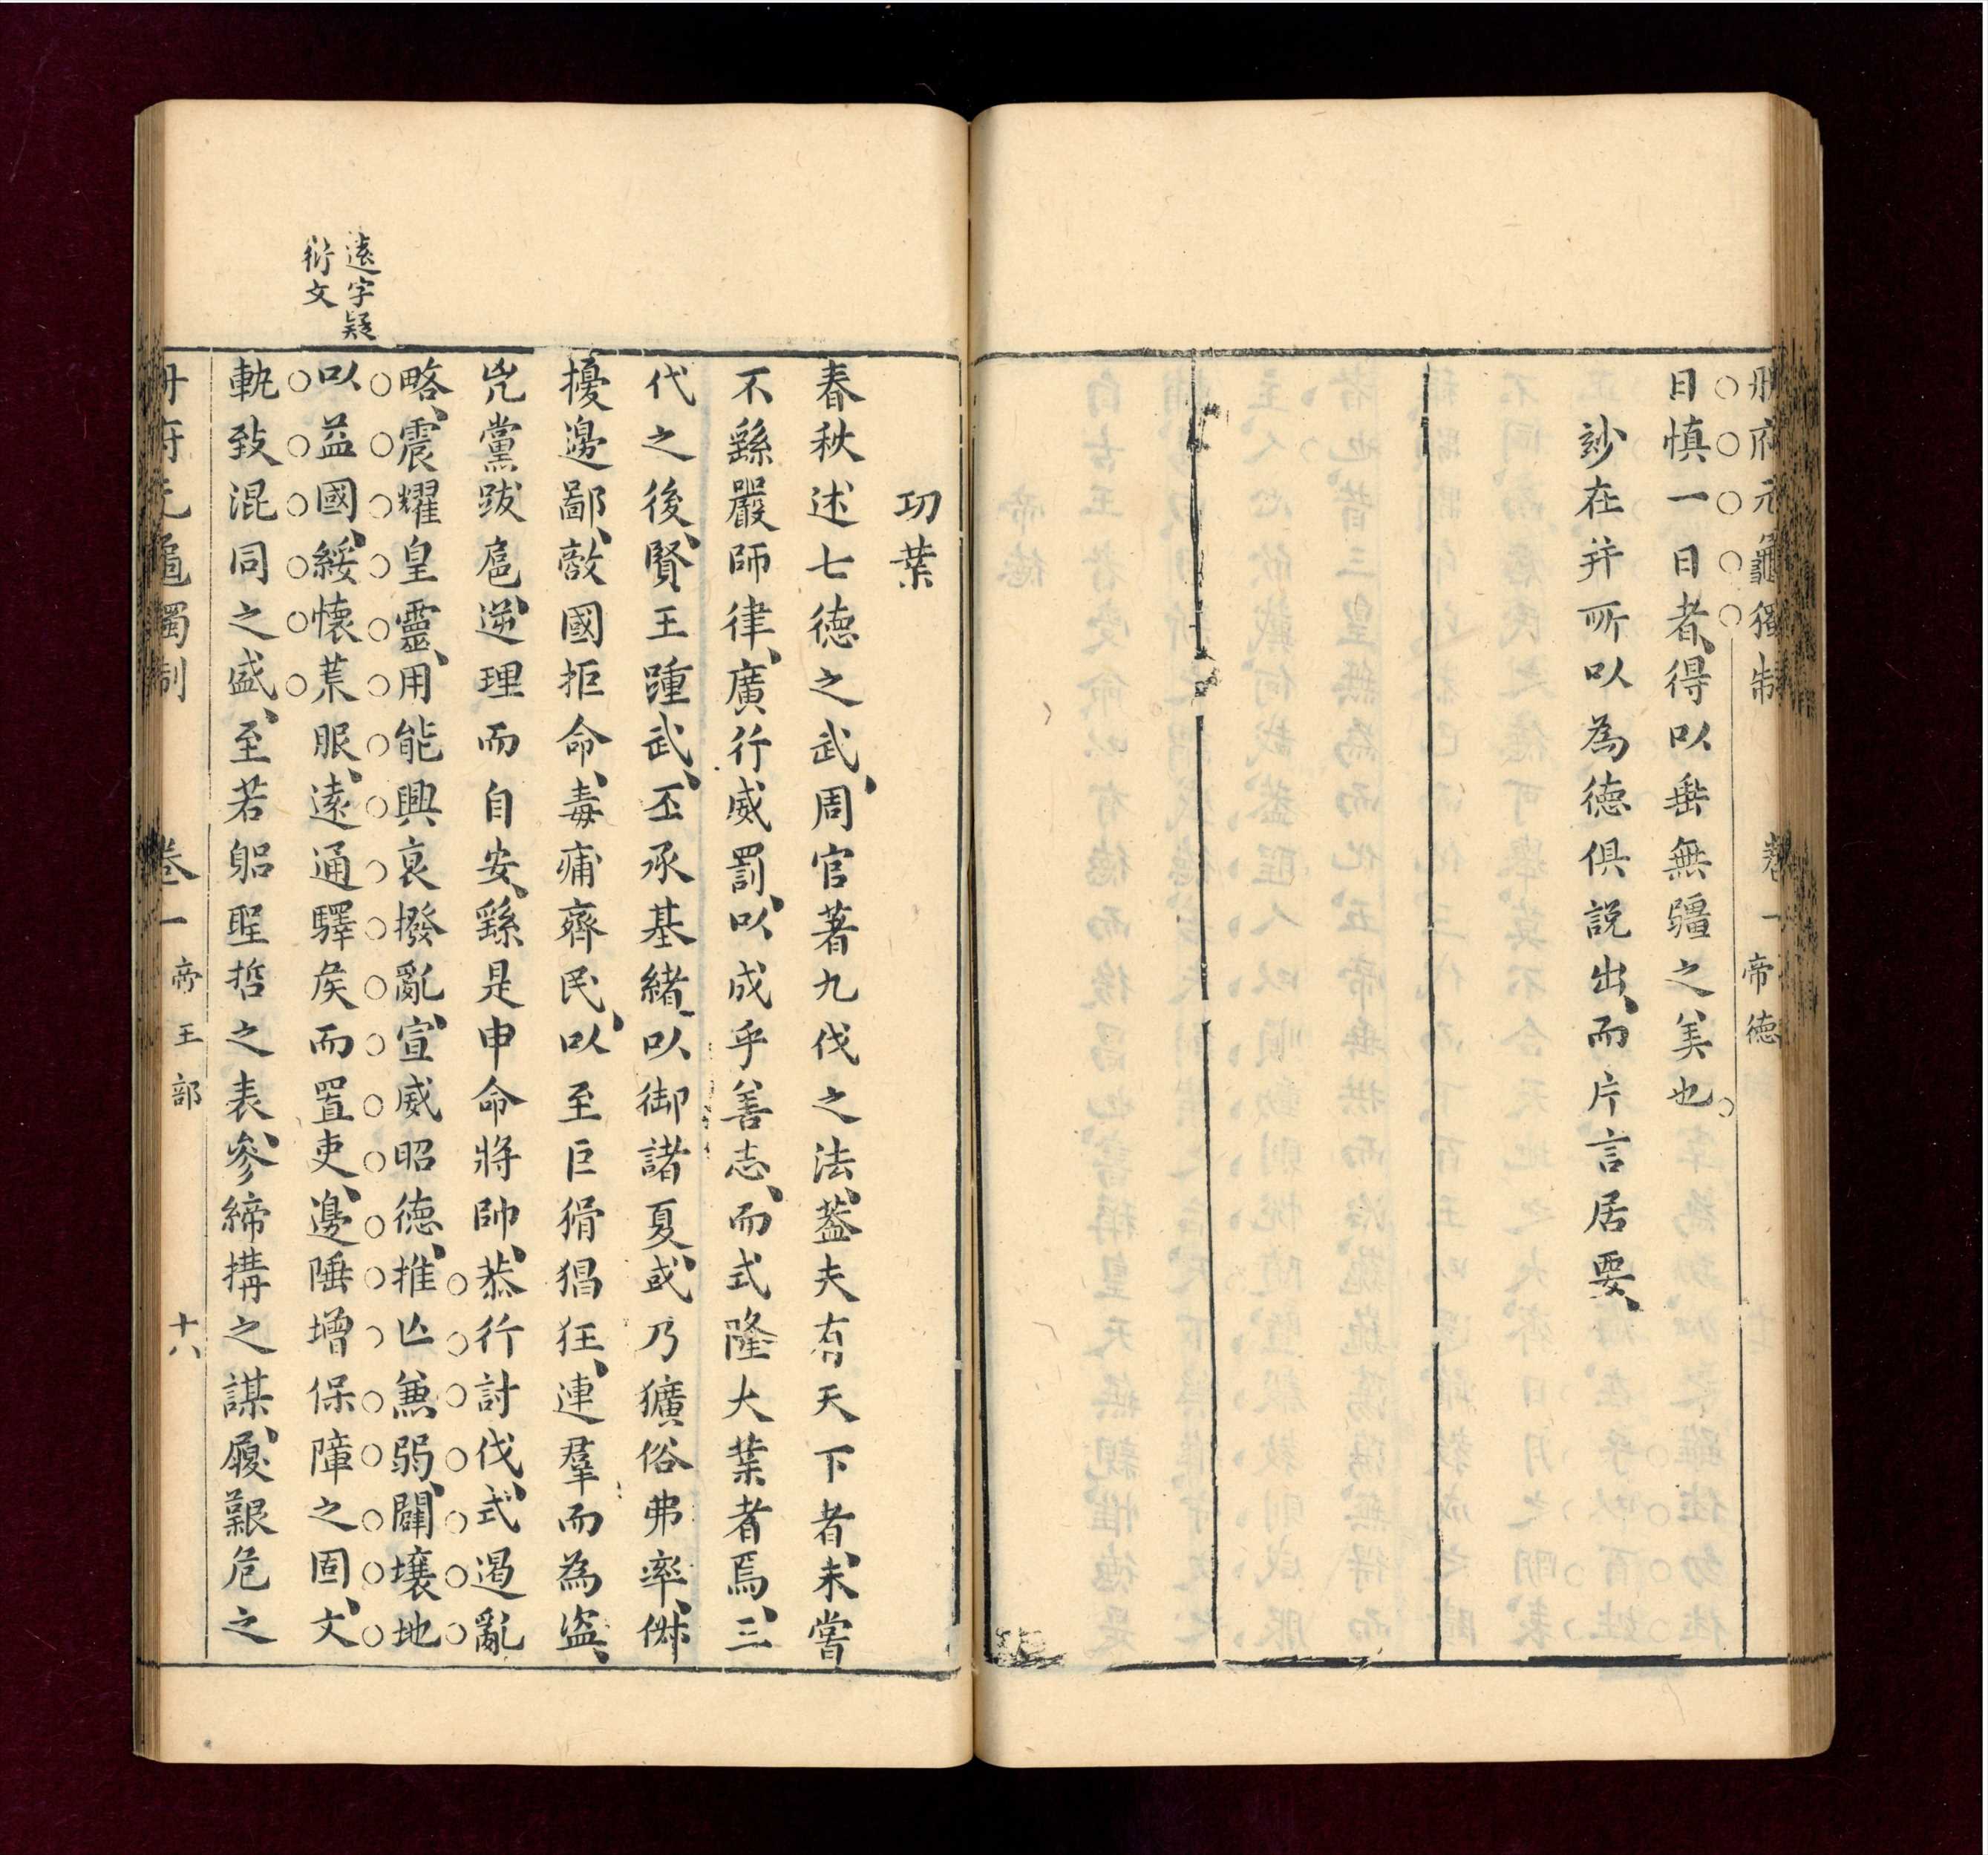 冊府元龜獨制　卷一　帝德
日慎一日者得以垂無疆之美也
玅在并所以為德俱說出而片言居要
功業
春秋述七德之武周官著九伐之法蓋夫有天下者未嘗
不繇嚴師律廣行威罰以成乎善志而式隆大業者焉三
代之後賢王踵武丕承基緒以御諸夏或乃獷俗弗率俶
擾邊鄙敵國拒命毒痡齊民以至巨猾猖狂連羣而為盜
兇黨跋扈逆理而自安繇是申命將帥恭行討伐式遏亂
略震耀皇靈用能興衰撥亂宣威昭德推亾兼弱闢壤地
以益國綏懷荒服遠通驛矦而置吏邊陲增保障之固文
軌致混同之盛至若躬聖哲之表參締搆之謀履艱危之
遠字疑
衍文
冊府元龜獨制　卷一　帝王部　十八